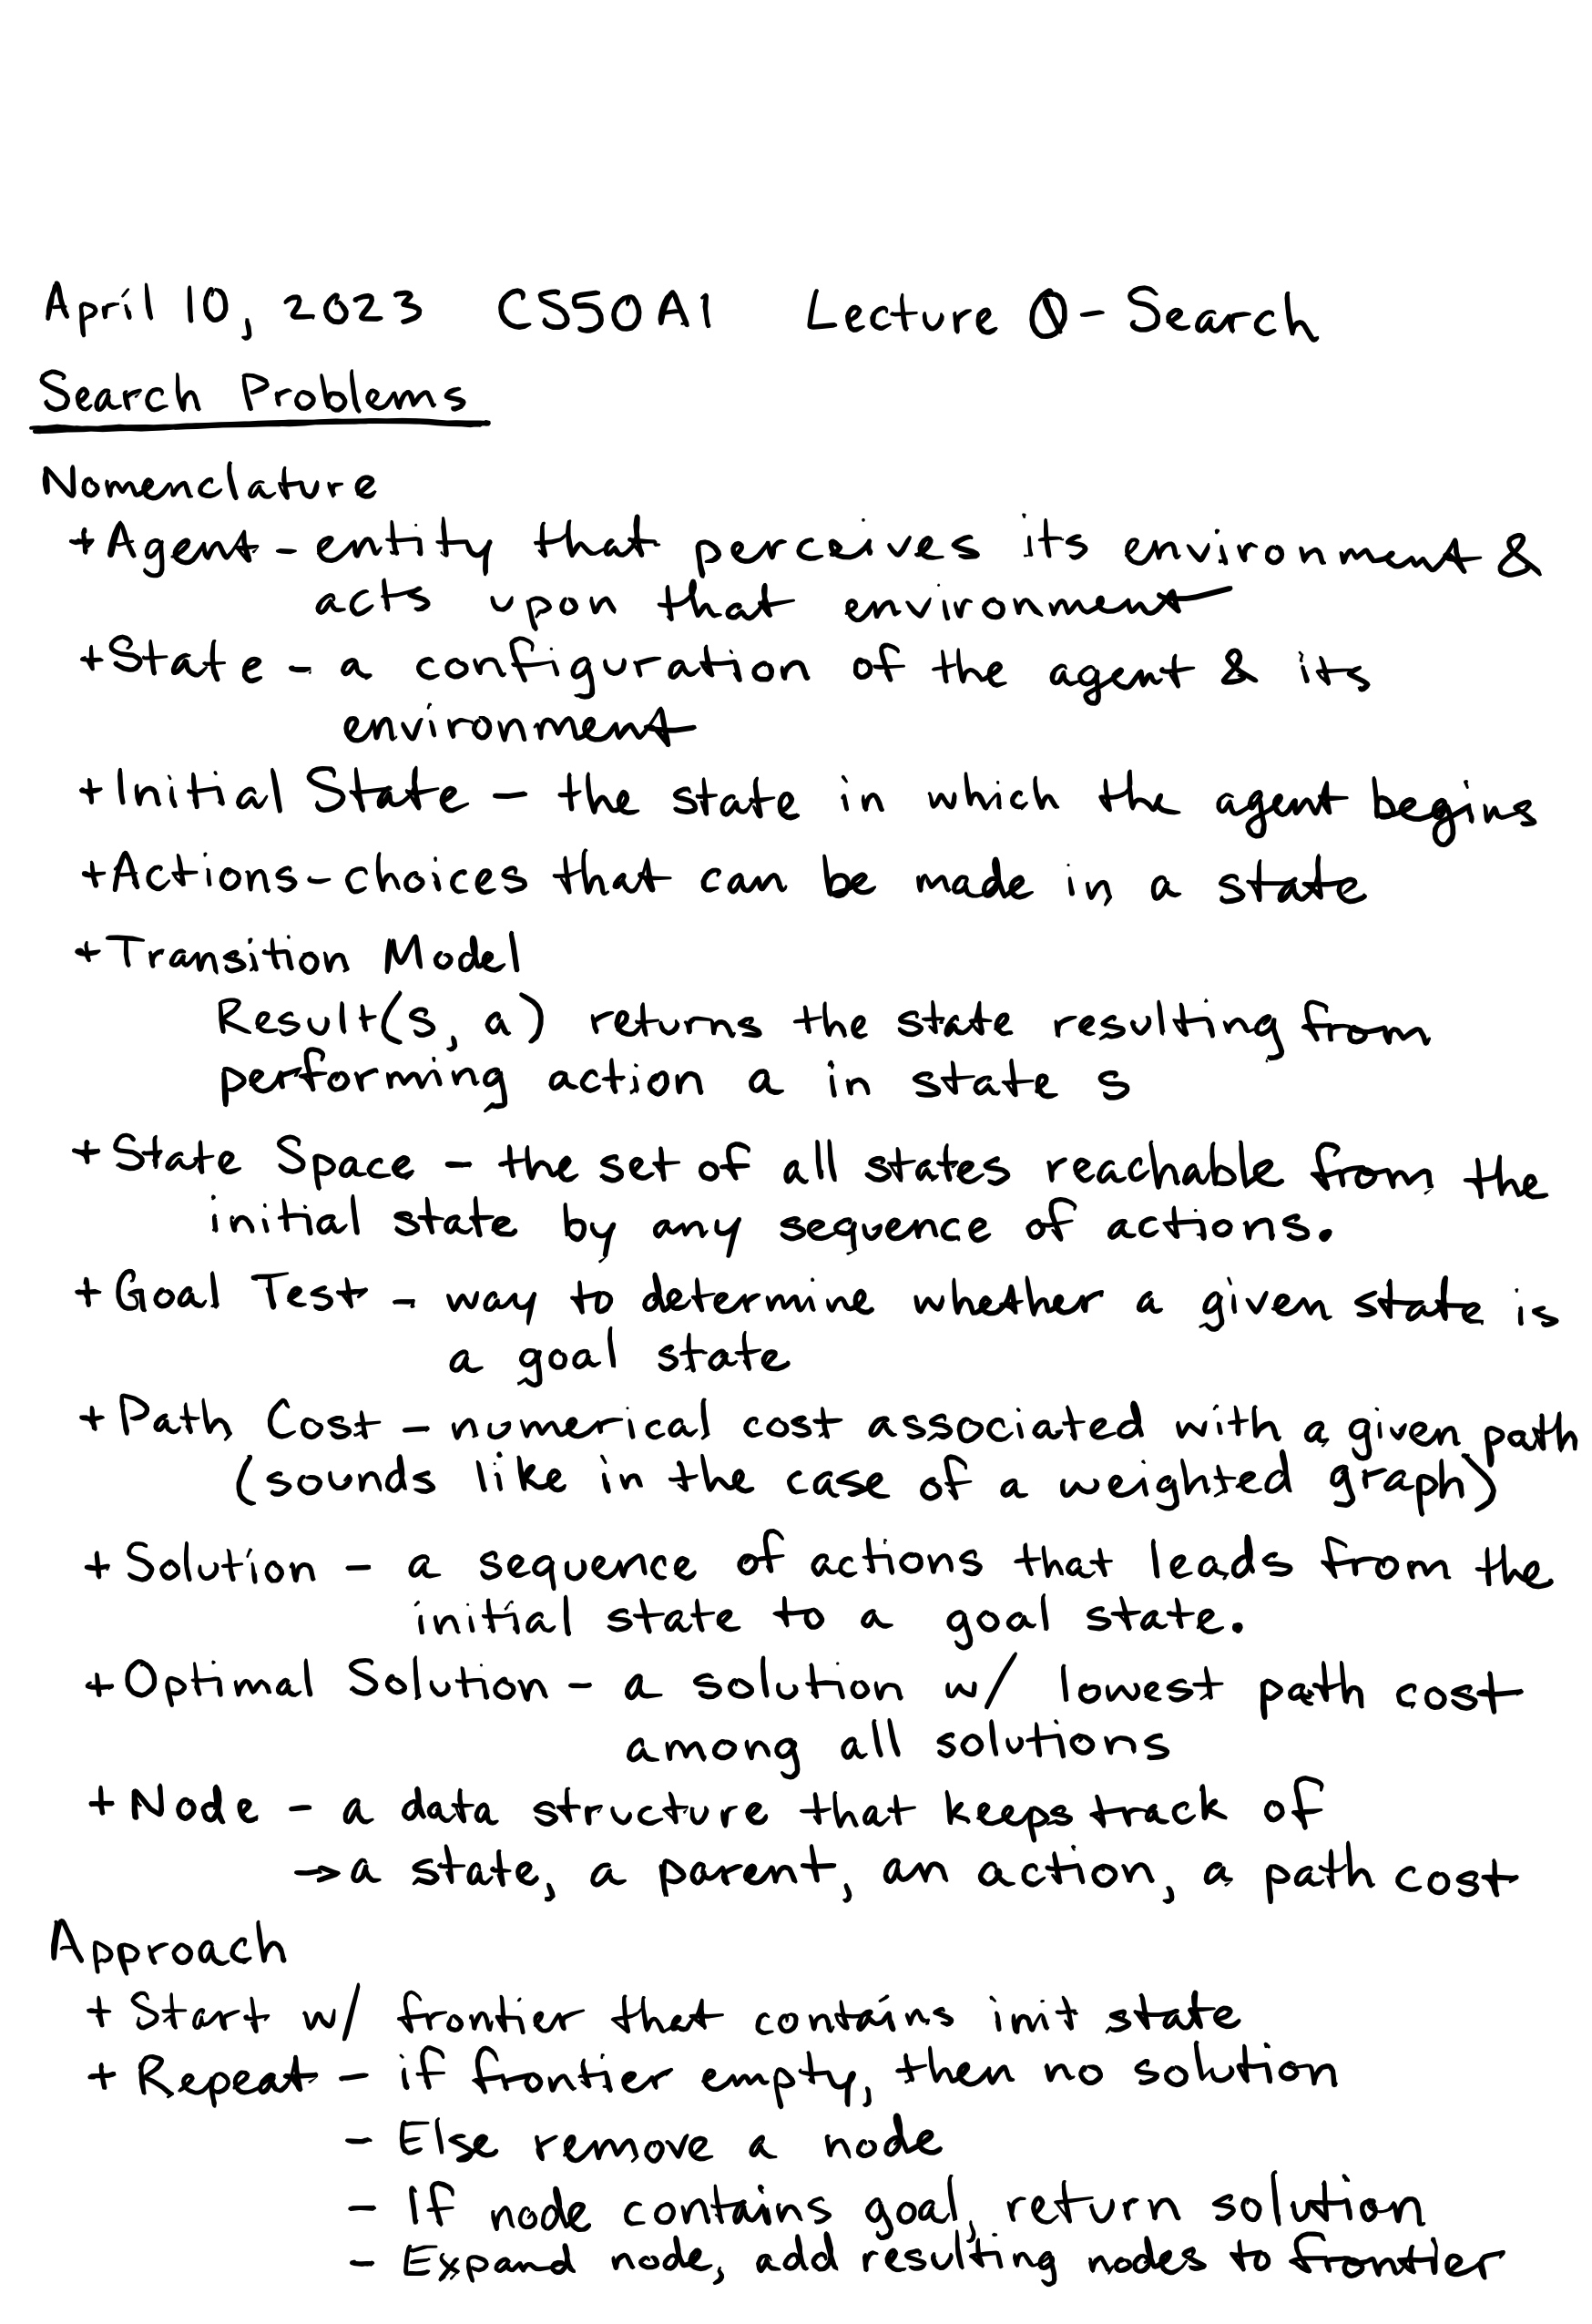 April 10, 2023 CS50AI Lecture 0 - Search
Search Problems
Nomenclature
+ Agent - entity that perceives its environment &
acts upon that environment
+ State - a configuration of the agent & its
environment
+ Initial State - the state in which the agent begins
+ Actions - choices that can be made in a state
+ Transition Model
Result(s, a) returns the state resulting from
performing action a in state s
+ State Space - the set of all states reachable from the
initial state by any sequence of actions.
+ Goal Test - way to determine whether a given state is
a goal state
+ Path Cost - numerical cost associated with a given path
(sounds like in the case of a weighted graph)
+ Solution - a sequence of actions that leads from the
initial state to a goal state.
+ Optimal Solution - a solution w/ lowest path cost
among all solutions
+ Node - a data structure that keeps track of
→ a state, a parent, an action, a path cost
Approach
+ Start w/ frontier that contains init state
+ Repeat - if frontier empty, then no solution
- Else remove a node
- If node contains goal, return solution
- Expand node, add resulting nodes to frontier